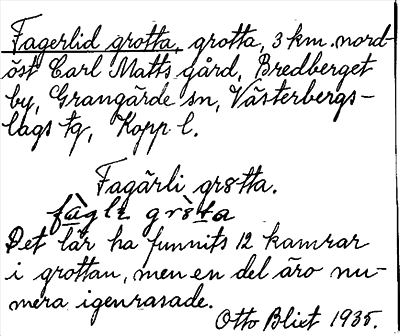 Fagerlid grotta, grotta, 3 km. nord-
öst Carl Matts gård, Bredberget
by, Grangärde sn, Västerbergs-
lags tg, Kopp l.
Fagärli gr8tta.
Det lär ha funnits 12 kamrar
i grottan, men en del äro nu-
mera igenrasade.
Otto Blixt 1935.